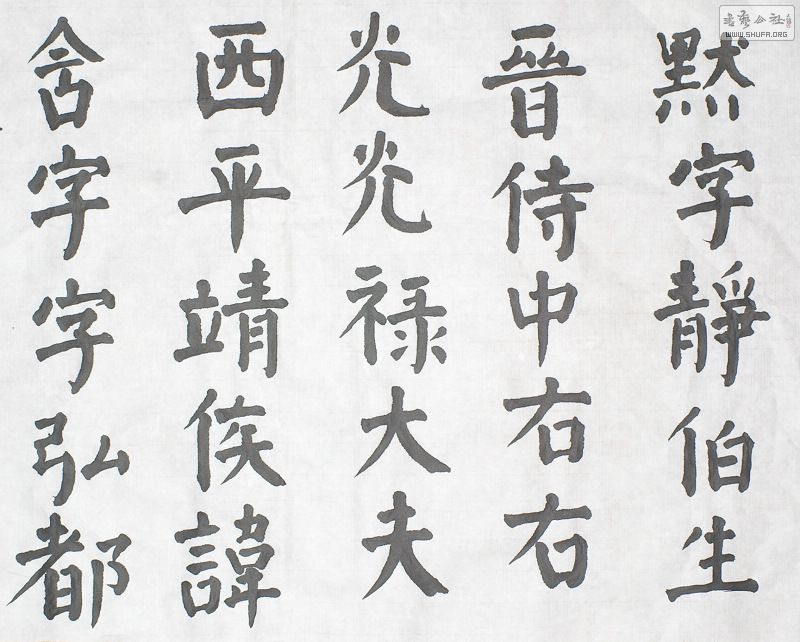 默字靜伯生
晉侍中右右
光光禄大夫
西平靖侯諱
含字字弘都
书藝公社
WWW.SHUFA.ORG